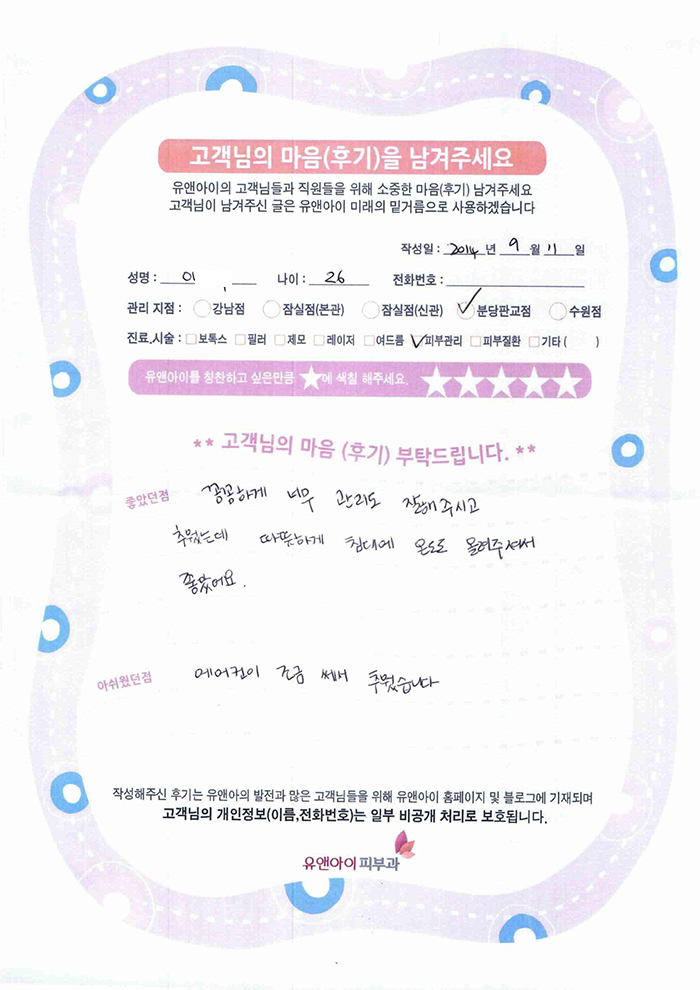 고객님의 마음(후기)을 남겨주세요
유앤아이의 고객님들과 직원들을 위해 소중한 마음(후기) 남겨주세요
고객님이 남겨주신 글은 유앤아이 미래의 밑거름으로 사용하겠습니다
작성일 : 2014 년 9 월 11 일
성명 : 이 나이 : 26 전화번호 :
관리 지점 : 강남점 잠실점(본관) 잠실점(신관) 분당판교점 수원점
진료,시술 : 보톡스 필러 제모 레이저 여드름 피부관리 피부질환 기타 ( )
유앤아이를 칭찬하고 싶은만큼 ★에 색칠 해주세요. ★★★★★
** 고객님의 마음 (후기) 부탁드립니다. **
좋았던점 꼼꼼하게 너무 관리도 잘해주시고
추웠는데 따뜻하게 침대에 온도도 올려주셔서
좋았어요.
아쉬웠던점 에어컨이 조금 쎄서 추웠습니다
작성해주신 후기는 유앤아의 발전과 많은 고객님들을 위해 유앤아이 홈페이지 및 블로그에 기재되며
고객님의 개인정보(이름,전화번호)는 일부 비공개 처리로 보호됩니다.
유앤아이피부과